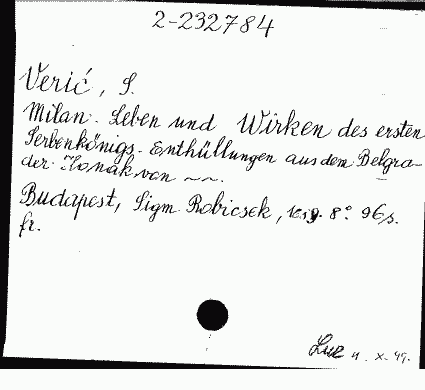 2-232784
Verić, S.
Milan. Leben und Wirken des ersten
Serbenkönigs. Enthüllungen aus dem Belgra-
der Konak von ~~.
Budapest, Sigm. Robicsek, 8° 96 s.
fr.
X. 49.